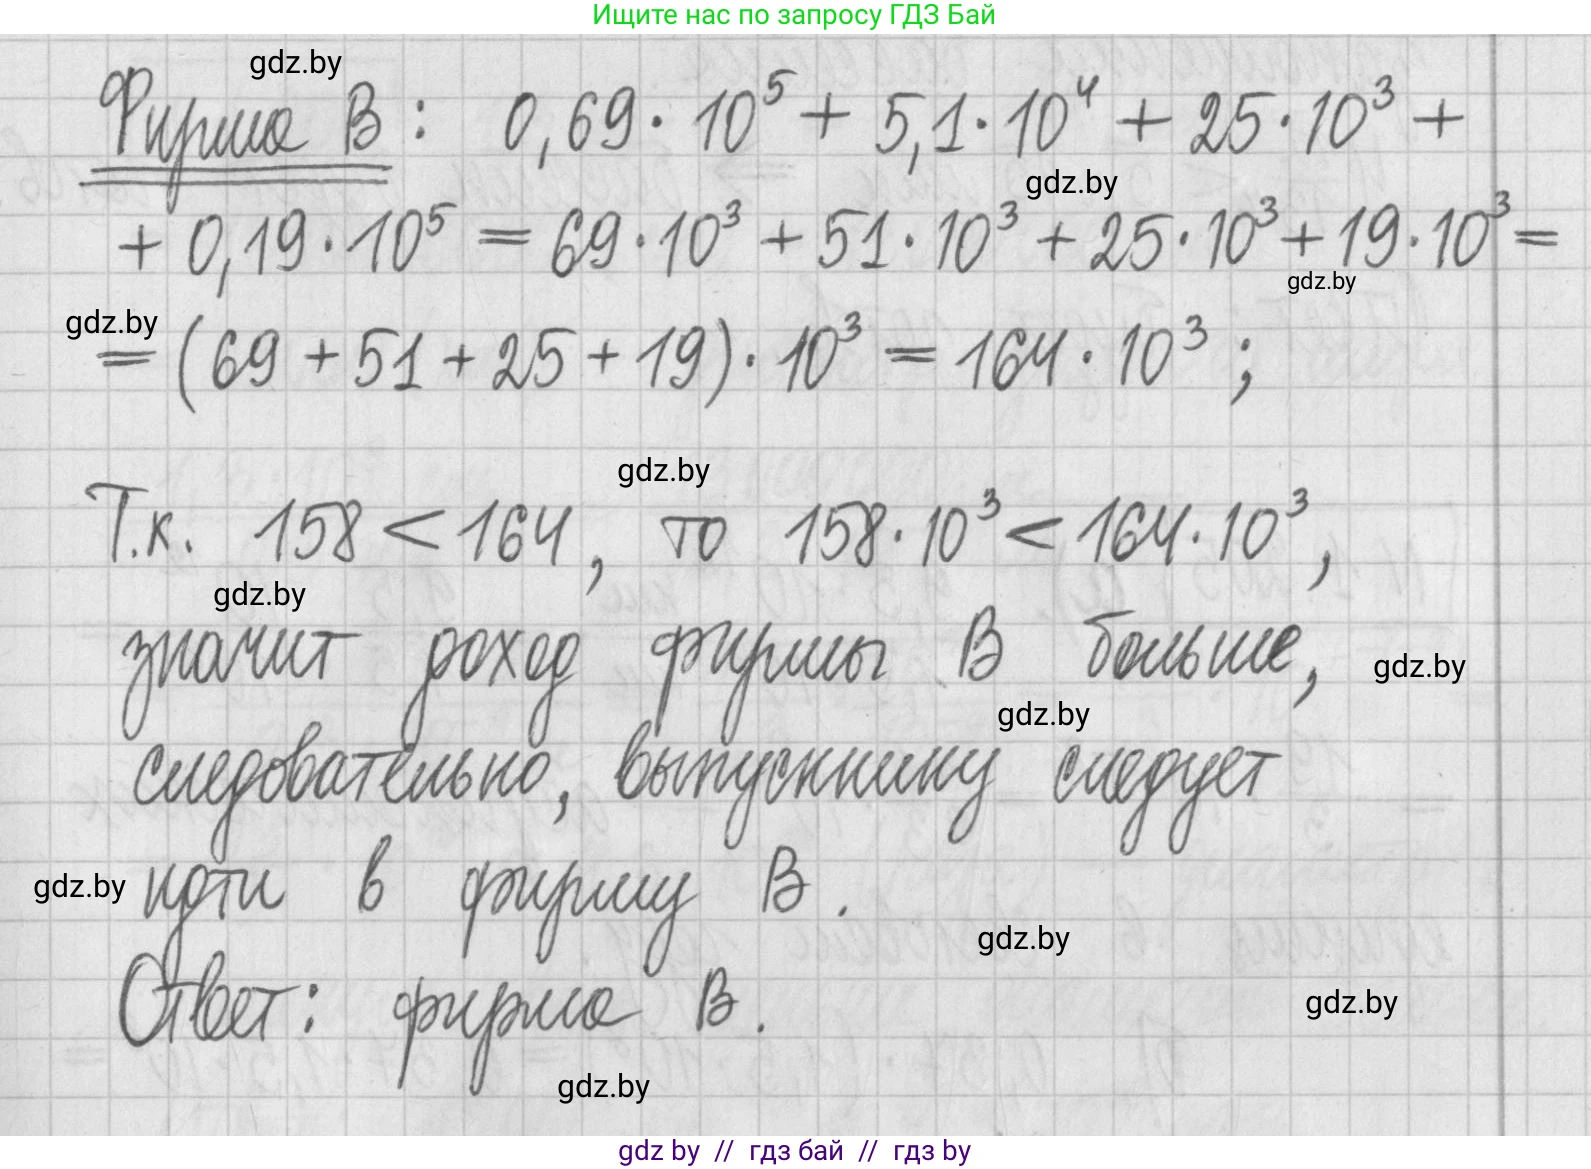 Ищите нас по запросу ГДЗ Бай
gdz.by
Фирма В: 0,69·10⁵ + 5,1·10⁴ + 25·10³ +
gdz.by
+ 0,19·10⁵ = 69·10³ + 51·10³ + 25·10³ + 19·10³ =
gdz.by
gdz.by
= (69 + 51 + 25 + 19)·10³ = 164·10³;
gdz.by
Т.к. 158 < 164, то 158·10³ < 164·10³,
gdz.by
значит доход фирмы В больше,
gdz.by
gdz.by
следовательно, выпускнику следует
gdz.by
идти в фирму В.
gdz.by
Ответ: фирма В.
gdz.by
gdz.by
gdz by // гдз бай // гдз by